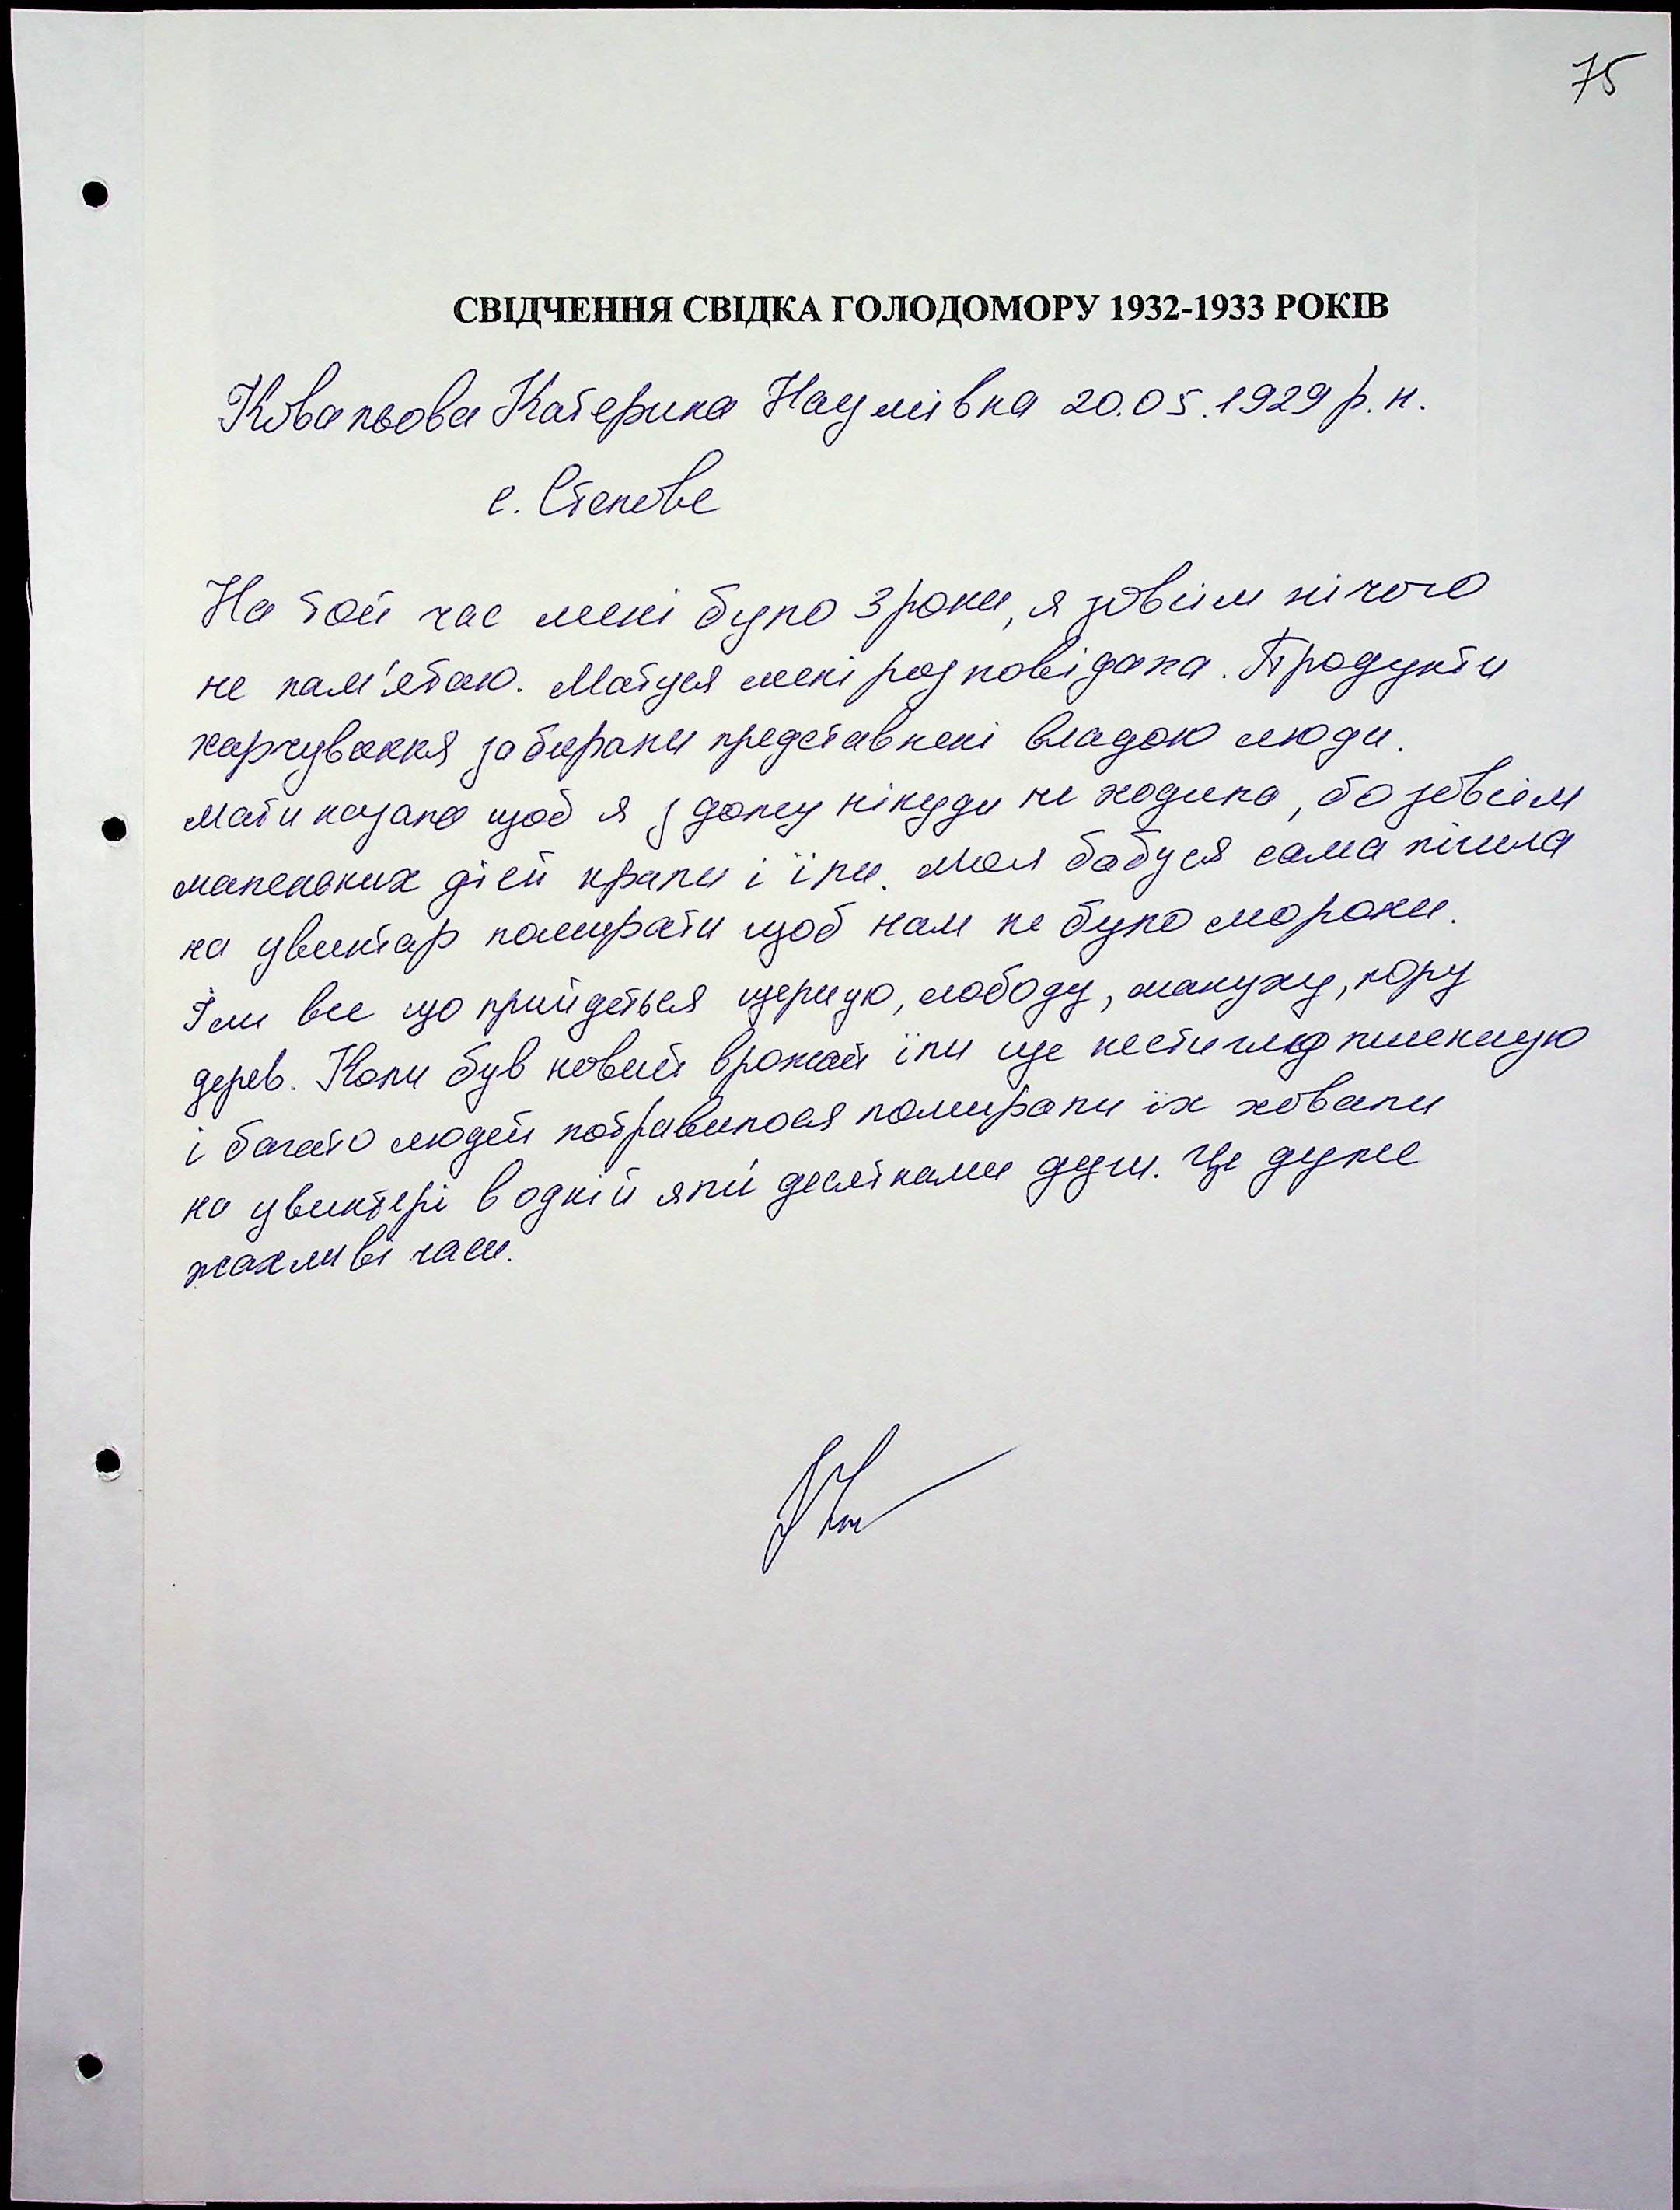 75
СВІДЧЕННЯ СВІДКА ГОЛОДОМОРУ 1932-1933 РОКІВ
Ковальова Катерина Наумівна 20.05.1929 р.н.
с. Степове
На той час мені було 3 роки, я зовсім нічого
не пам'ятаю. Матуся мені розповідала. Продукти
харчування забирали представлені владою люди.
Мати казала щоб я з дому нікуди не ходила, бо зовсім
маленьких дітей крали і їли. Моя бабуся сама пішла
на цвинтар помирати щоб нам не було мороки.
Їли все що прийдеться щерицю, лободу, макуху, кору
дерев. Коли був новий врожай їли ще нестиглу пшеницю
і багато людей потравилося помирали їх ховали
на цвинтері в одній ямі десятками душ. Це дуже
жахливі часи.